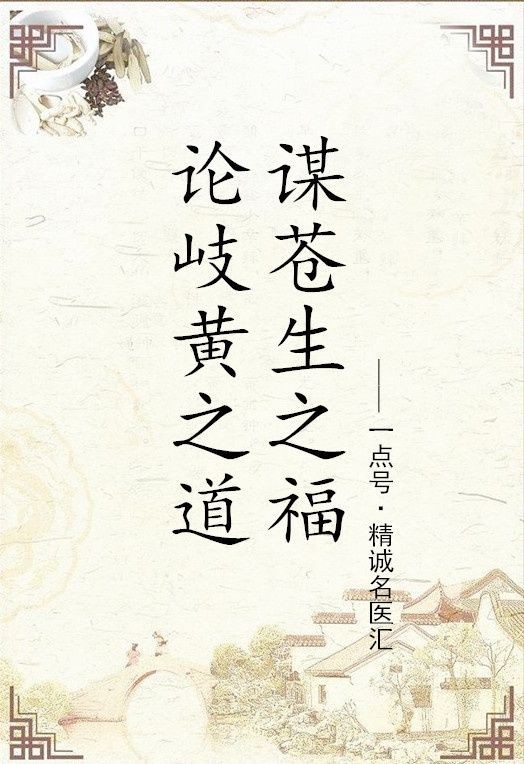 谋苍生之福
论岐黄之道
——一点号·精诚名医汇